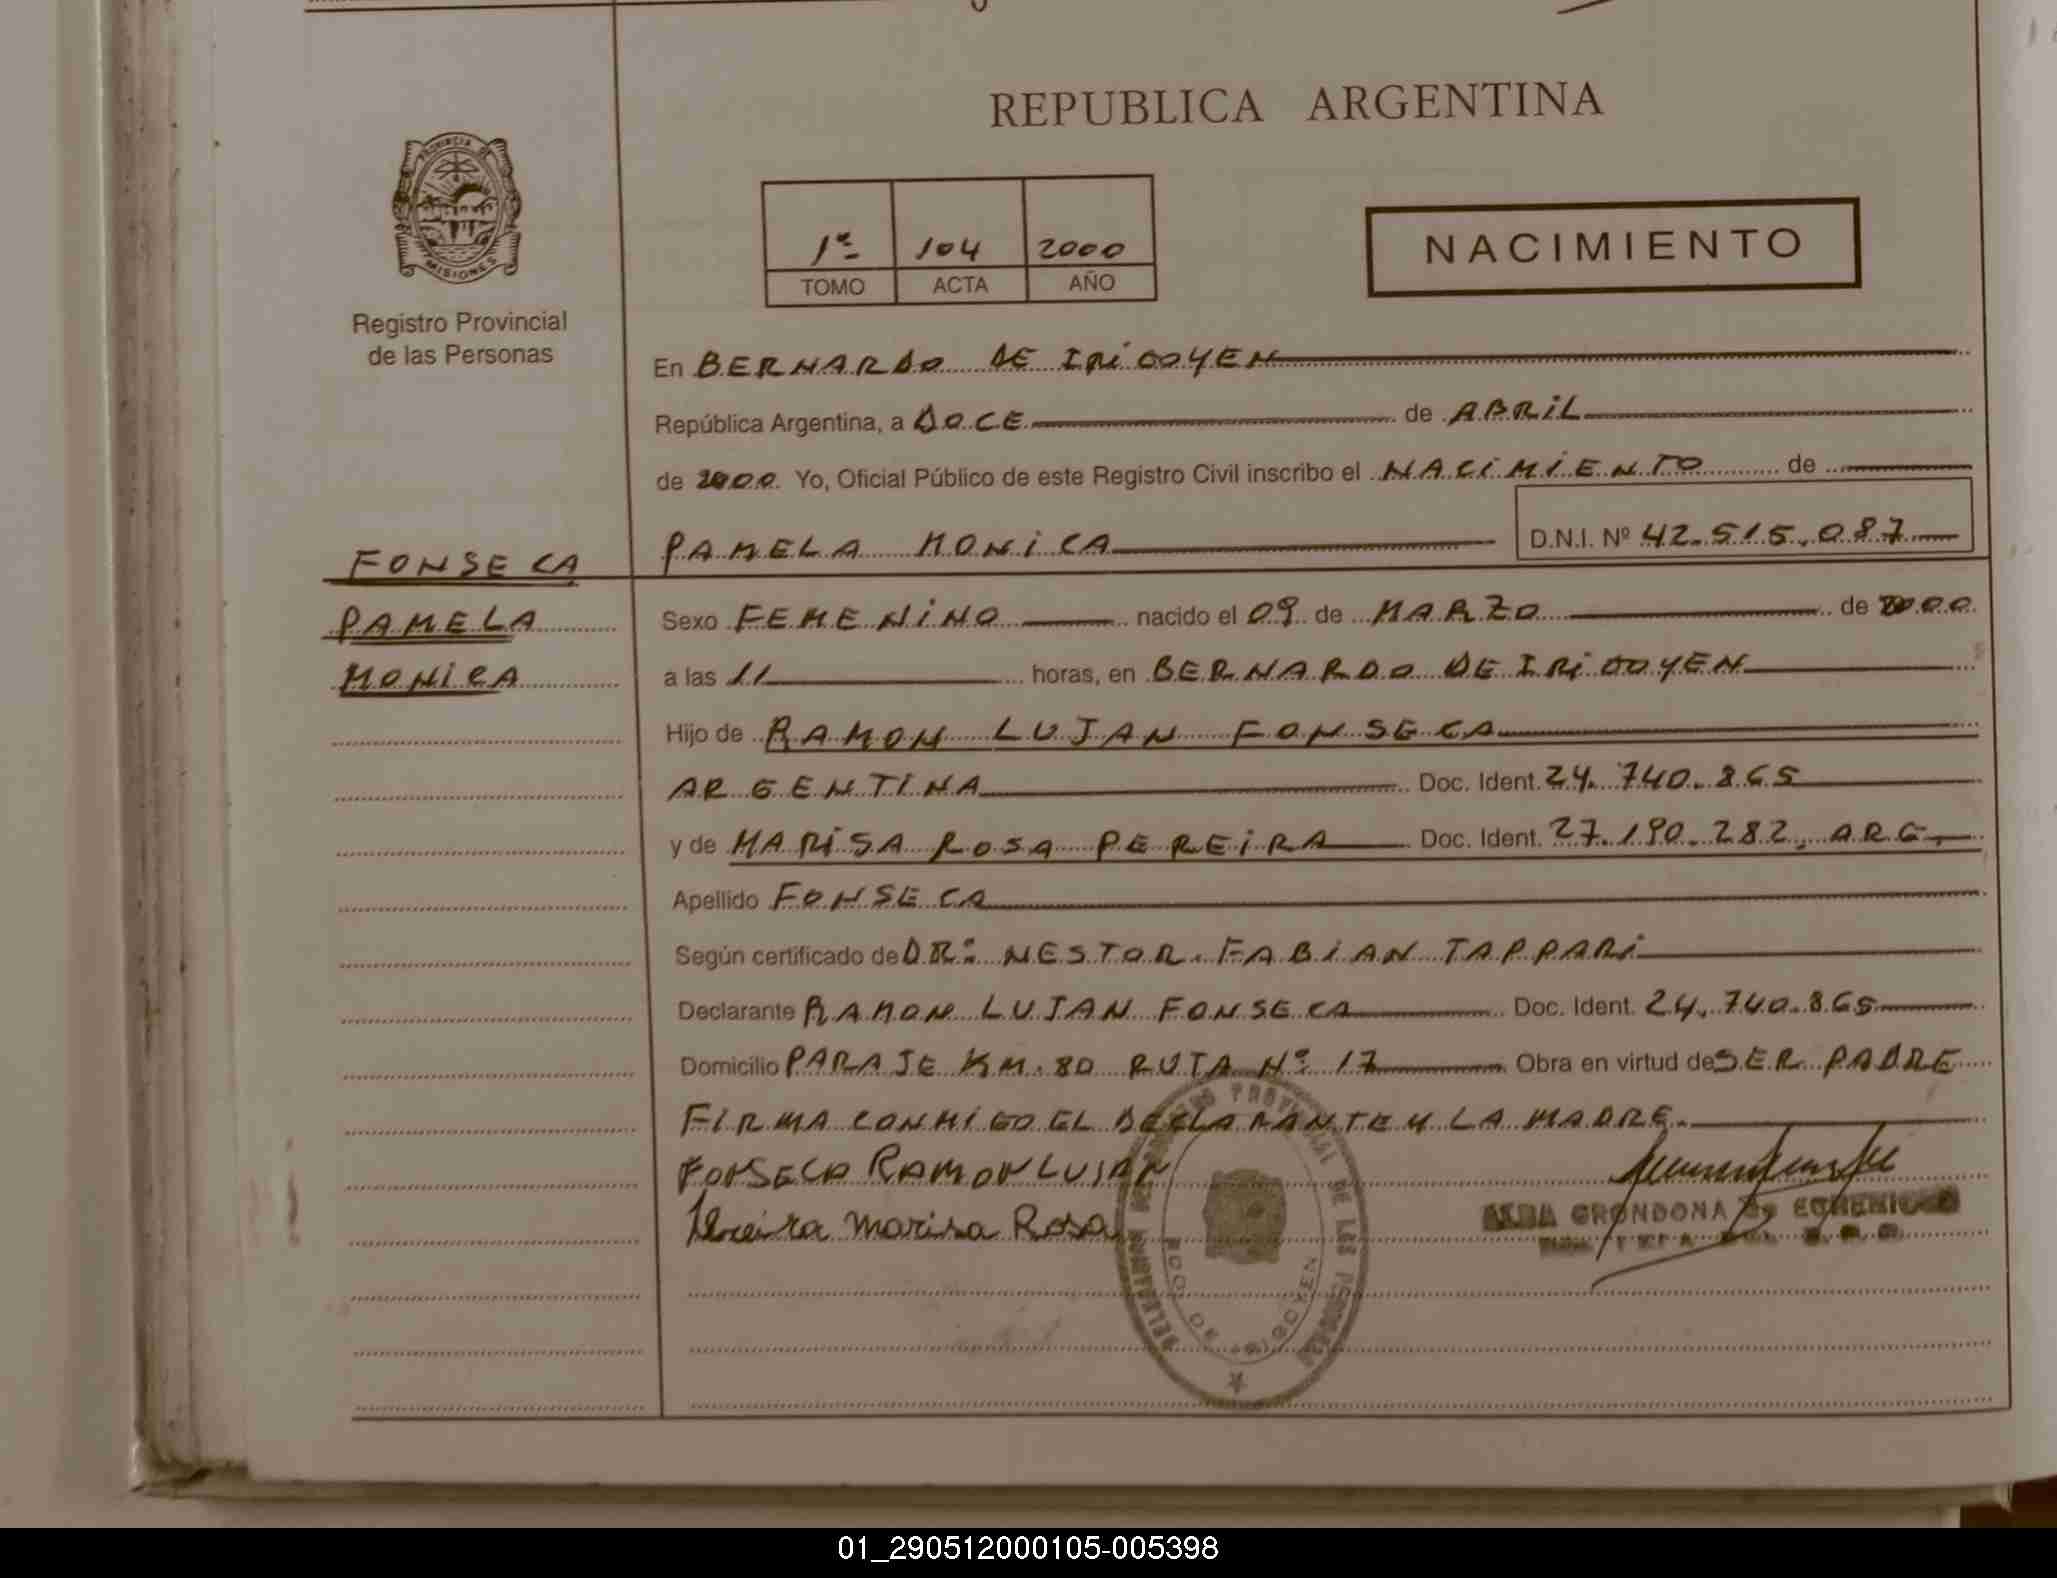 REPUBLICA ARGENTINA
PROVINCIA DE
MISIONES
Registro Provincial
de las Personas
1º 104 2000
TOMO ACTA AÑO
NACIMIENTO
En BERNARDO DE IRIGOYEN
República Argentina, a DOCE de ABRIL
de 2000. Yo, Oficial Público de este Registro Civil inscribo el NACIMIENTO de
PAMELA MONICA D.N.I. Nº 42.515.087
FONSECA
PAMELA
MONICA
Sexo FEMENINO nacido el 09 de MARZO de 2000
a las 11 horas, en BERNARDO DE IRIGOYEN
Hijo de RAMON LUJAN FONSECA
ARGENTINA Doc. Ident. 24.740.865
y de MARISA ROSA PEREIRA Doc. Ident. 27.190.282, ARG.
Apellido FONSECA
Según certificado de DR: NESTOR FABIAN TAPPARI
Declarante RAMON LUJAN FONSECA Doc. Ident. 24.740.865
Domicilio PARAJE KM. 80 RUTA Nº 17 Obra en virtud de SER PADRE
FIRMA CONMIGO EL DECLARANTE Y LA MADRE.
FONSECA RAMON LUJAN
Pereira Marisa Rosa
ALBA GRONDONA DE
PROVINCIAL DE LAS PERSONAS
BDO. DE IRIGOYEN
01_290512000105-005398